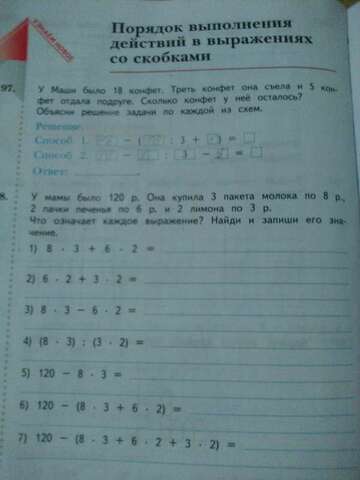 УЗНАЁМ НОВОЕ
Порядок выполнения
действий в выражениях
со скобками
97. У Маши было 18 конфет. Треть конфет она съела и 5 кон-
фет отдала подруге. Сколько конфет у неё осталось?
Объясни решение задачи по каждой из схем.
Решение.
Способ 1. □ − (□ : 3 + □) = □
Способ 2. □ − □ : 3 − □ = □
Ответ:
8. У мамы было 120 р. Она купила 3 пакета молока по 8 р.,
2 пачки печенья по 6 р. и 2 лимона по 3 р.
Что означает каждое выражение? Найди и запиши его зна-
чение.
1) 8 · 3 + 6 · 2 =
2) 6 · 2 + 3 · 2 =
3) 8 · 3 − 6 · 2 =
4) (8 · 3) : (3 · 2) =
5) 120 − 8 · 3 =
6) 120 − (8 · 3 + 6 · 2) =
7) 120 − (8 · 3 + 6 · 2 + 3 · 2) =